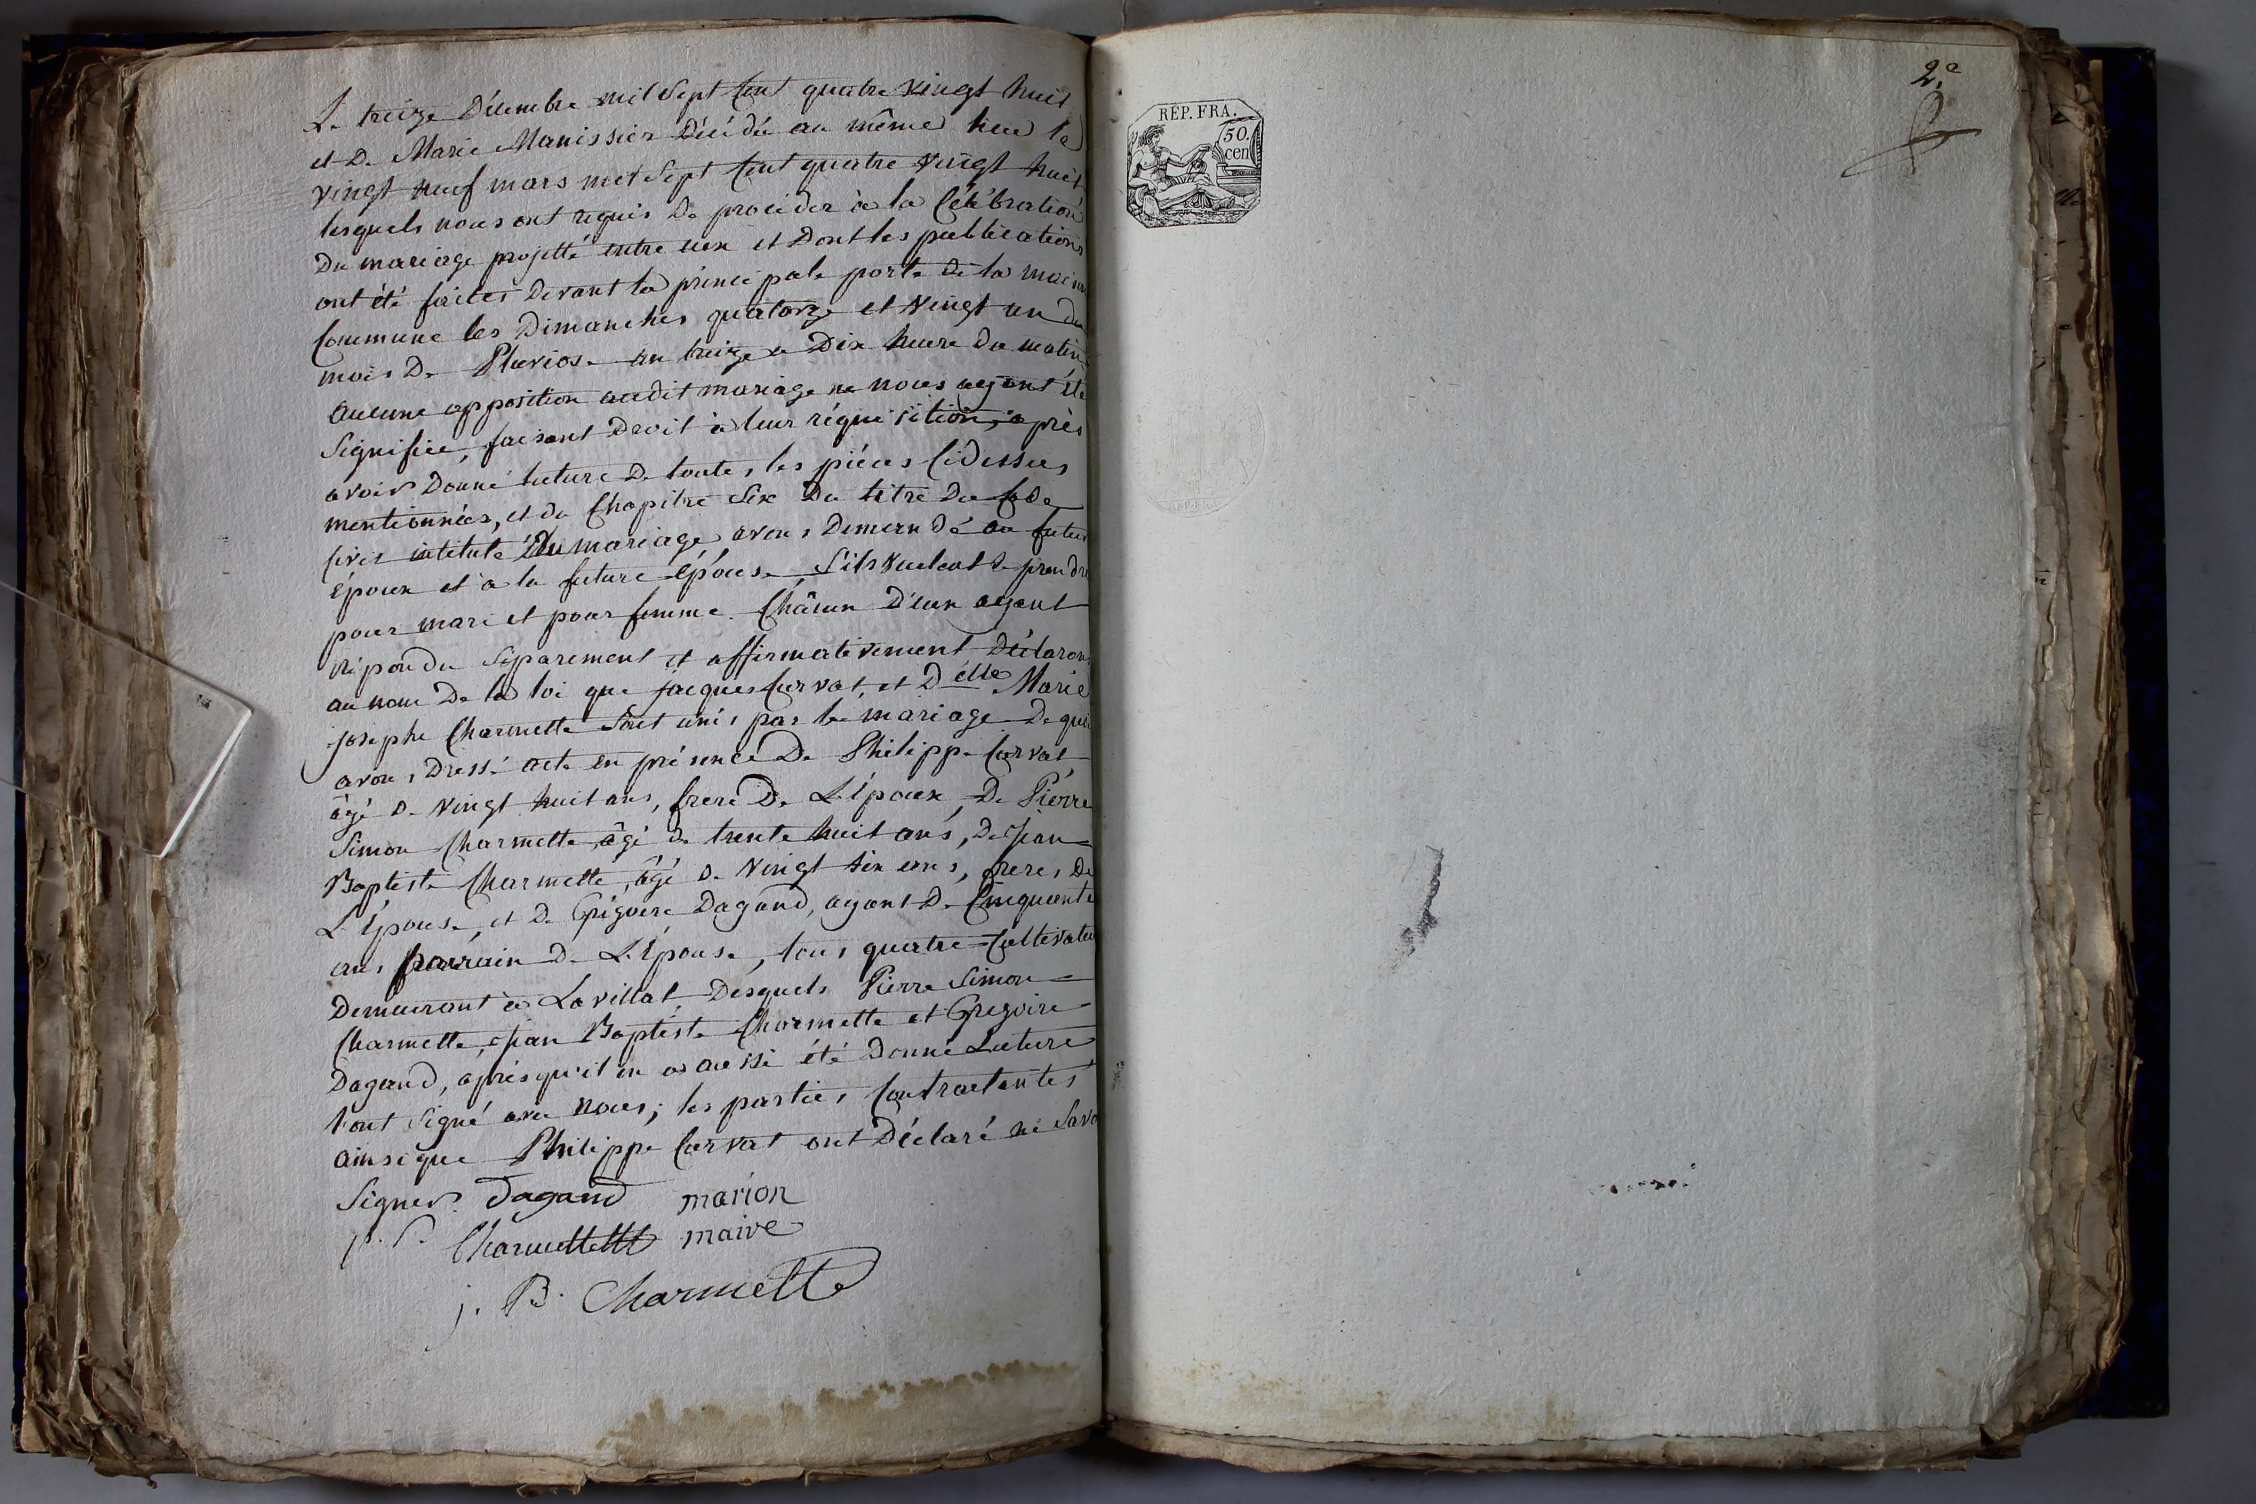 Le treize Décembre mil sept Cent quatre vingt huit
et De Marie Manissier Décédée au même lieu le
vingt neuf mars mil sept Cent quatre vingt huit
lesquels nous ont requis De procéder à la Célébration
Du mariage projetté entre eux et Dont les publications
ont été faites Devant la principale porte De la maison
Commune les Dimanches quatorze et vingt un du
mois De Pluviose an treize a Dix heure du matin
Aucune opposition audit mariage ne nous ayant été
signifiée, faisant Droit à leur réquisition, après
avoir Donné lecture De toutes les piéces Cidessus
mentionnées, et du Chapitre Six Du titre Du Code
Civil intitulé Du mariage avons Demandé au futur
époux et à la future épouse S'ils veulent se prendre
pour mari et pour femme. Châcun D'eux ayant
répondu séparement et affirmativement Déclarons
au nom De la loi que jacques Curvat, et Delle Marie
josephe Charmette sont unis par le mariage De quoi
avons Dressé acte en présence De Philippe Curvat
âgé De vingt huit ans, frere De L'époux, De Piérre
Simon Charmette, âgé de trente huit ans, De jean
Baptiste Charmette, âgé De vingt six ans, freres De
L'épouse, et De Grégoire Dagand, ayant De Cinquante
ans parrain De L'épouse, tous quatre Cultivateurs
Demeurant à Lavillat Desquels Pierre Simon
Charmette, jean Baptiste Charmette et Gregoire
Dagand, après qu'il en a aussi été Donné Lecture
l'ont Signé avec nous; les parties Contractantes
ainsi que Philippe Curvat ont Déclaré ne savoir
Signer. Dagand marion
p. S. Charmettette maire
j. B. Charmette
2.e
RÉP. FRA.
50.
cen